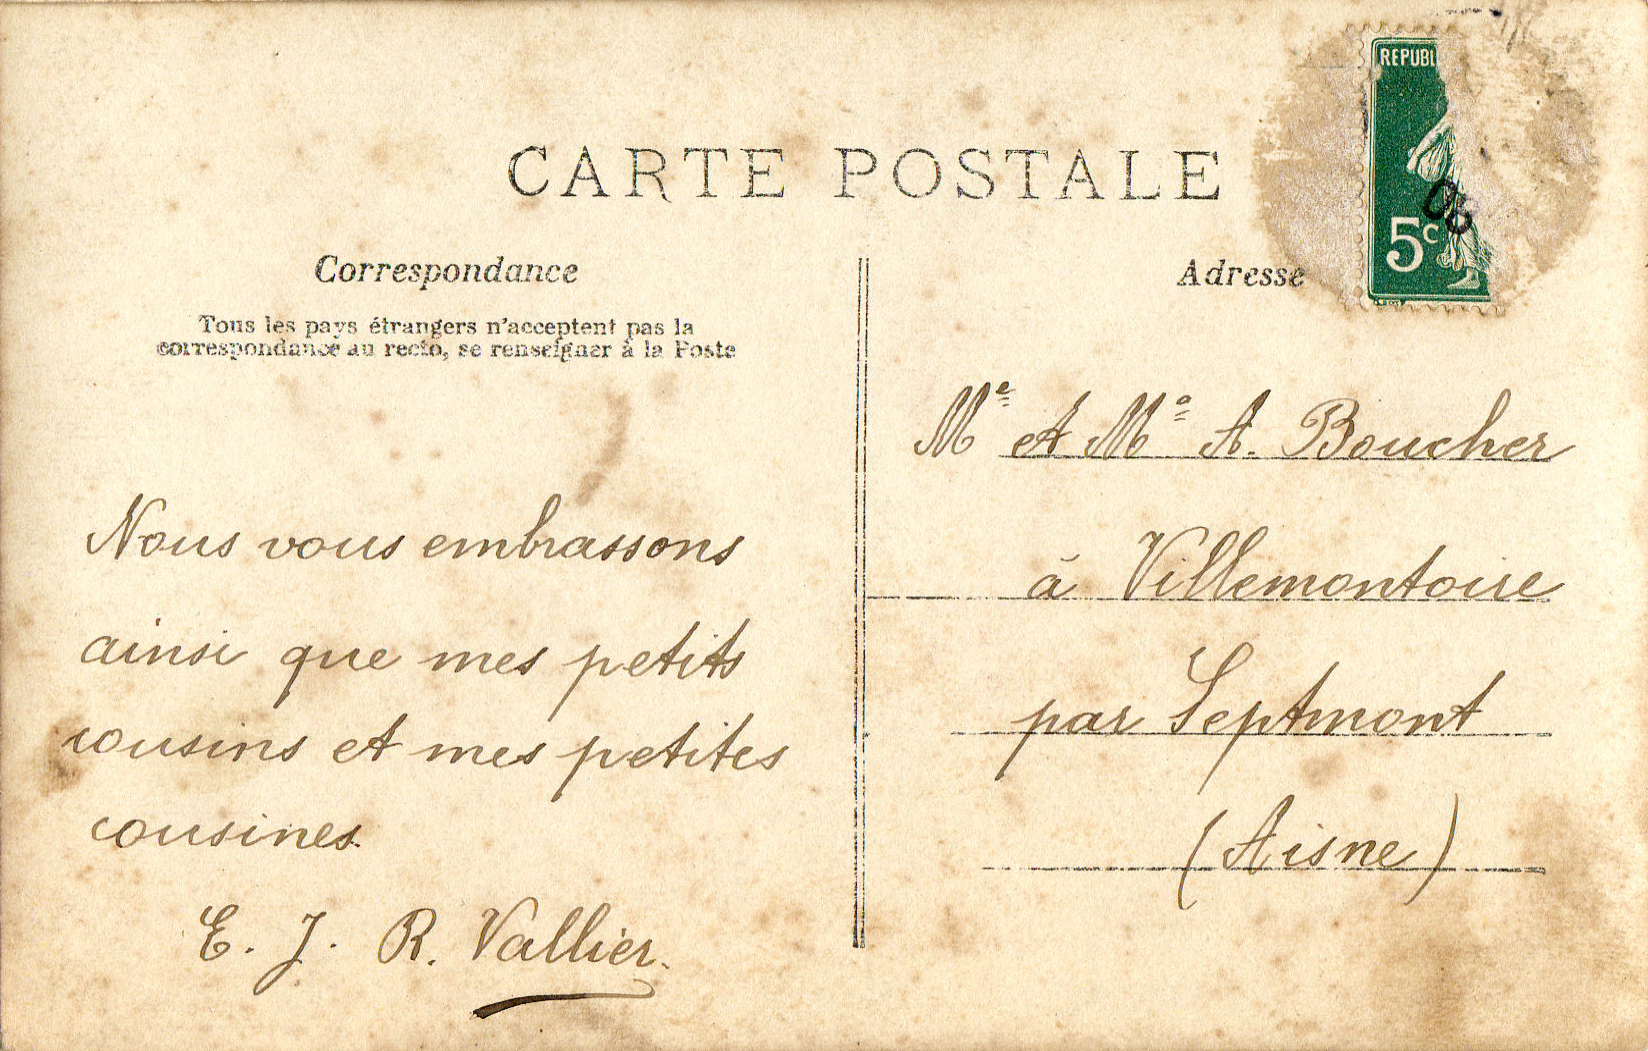 CARTE POSTALE
Correspondance
Tous les pays étrangers n'acceptent pas la
correspondance au recto, se renseigner à la Poste
Nous vous embrassons
ainsi que mes petits
cousins et mes petites
cousines.
E. J. R. Vallier.
REPUBL
5c
Adresse
Me et Me A. Boucher
à Villemontoire
par Septmont
(Aisne)